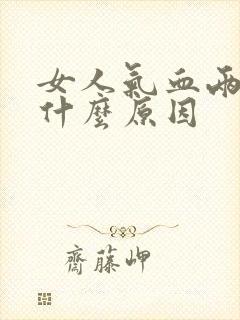 女人氣血兩
什麼原因
齋藤岬